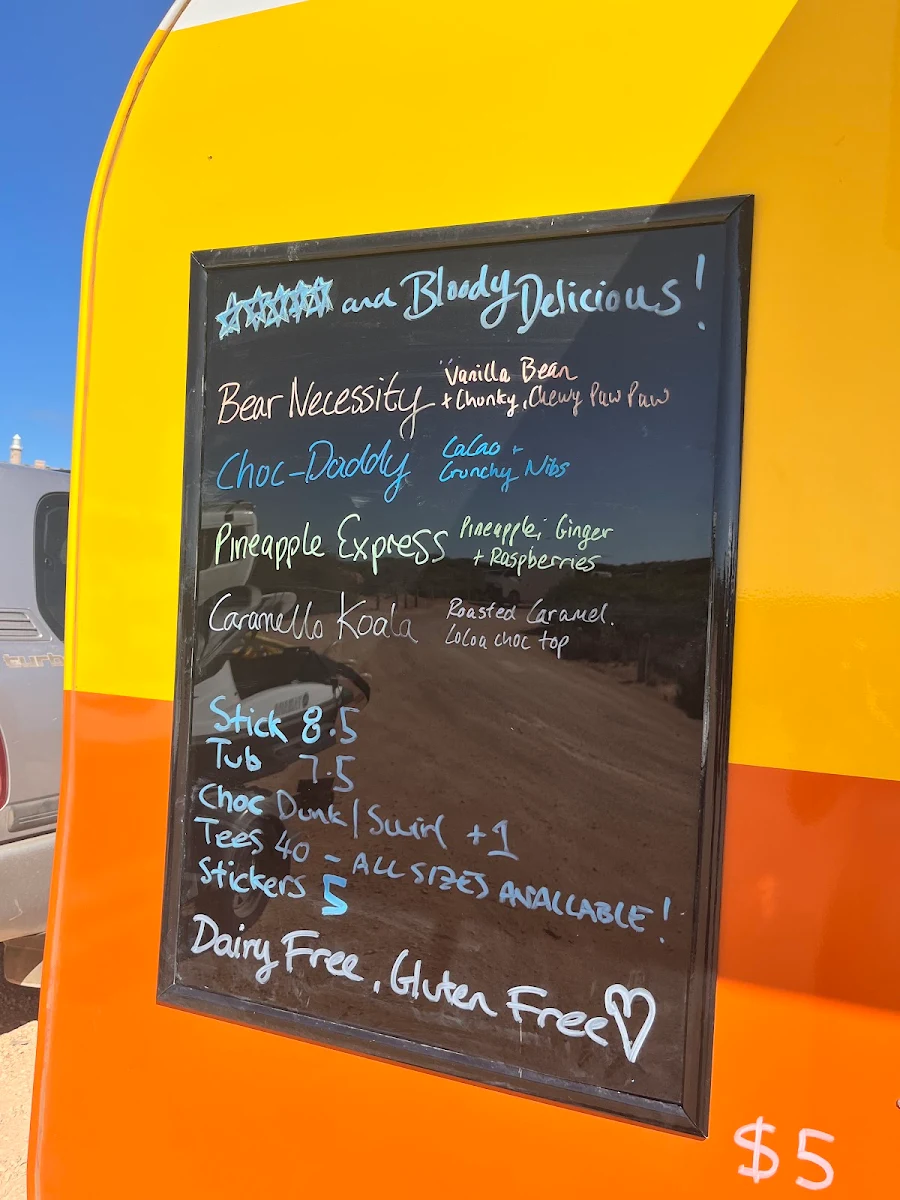 ☆☆☆☆☆ and Bloody Delicious!
Bear Necessity Vanilla Bean
+ Chunky, Chewy Paw Paw
Choc-Daddy CaCao +
Crunchy Nibs
Pineapple Express Pineapple, Ginger
+ Raspberries
Caramello Koala Roasted Caramel.
CoCoa choc top
Stick 8.5
Tub 7.5
Choc Dunk/Swirl +1
Tees 40 - ALL SIZES AVAILABLE!
Stickers 5
Dairy Free, Gluten Free ♡
$5